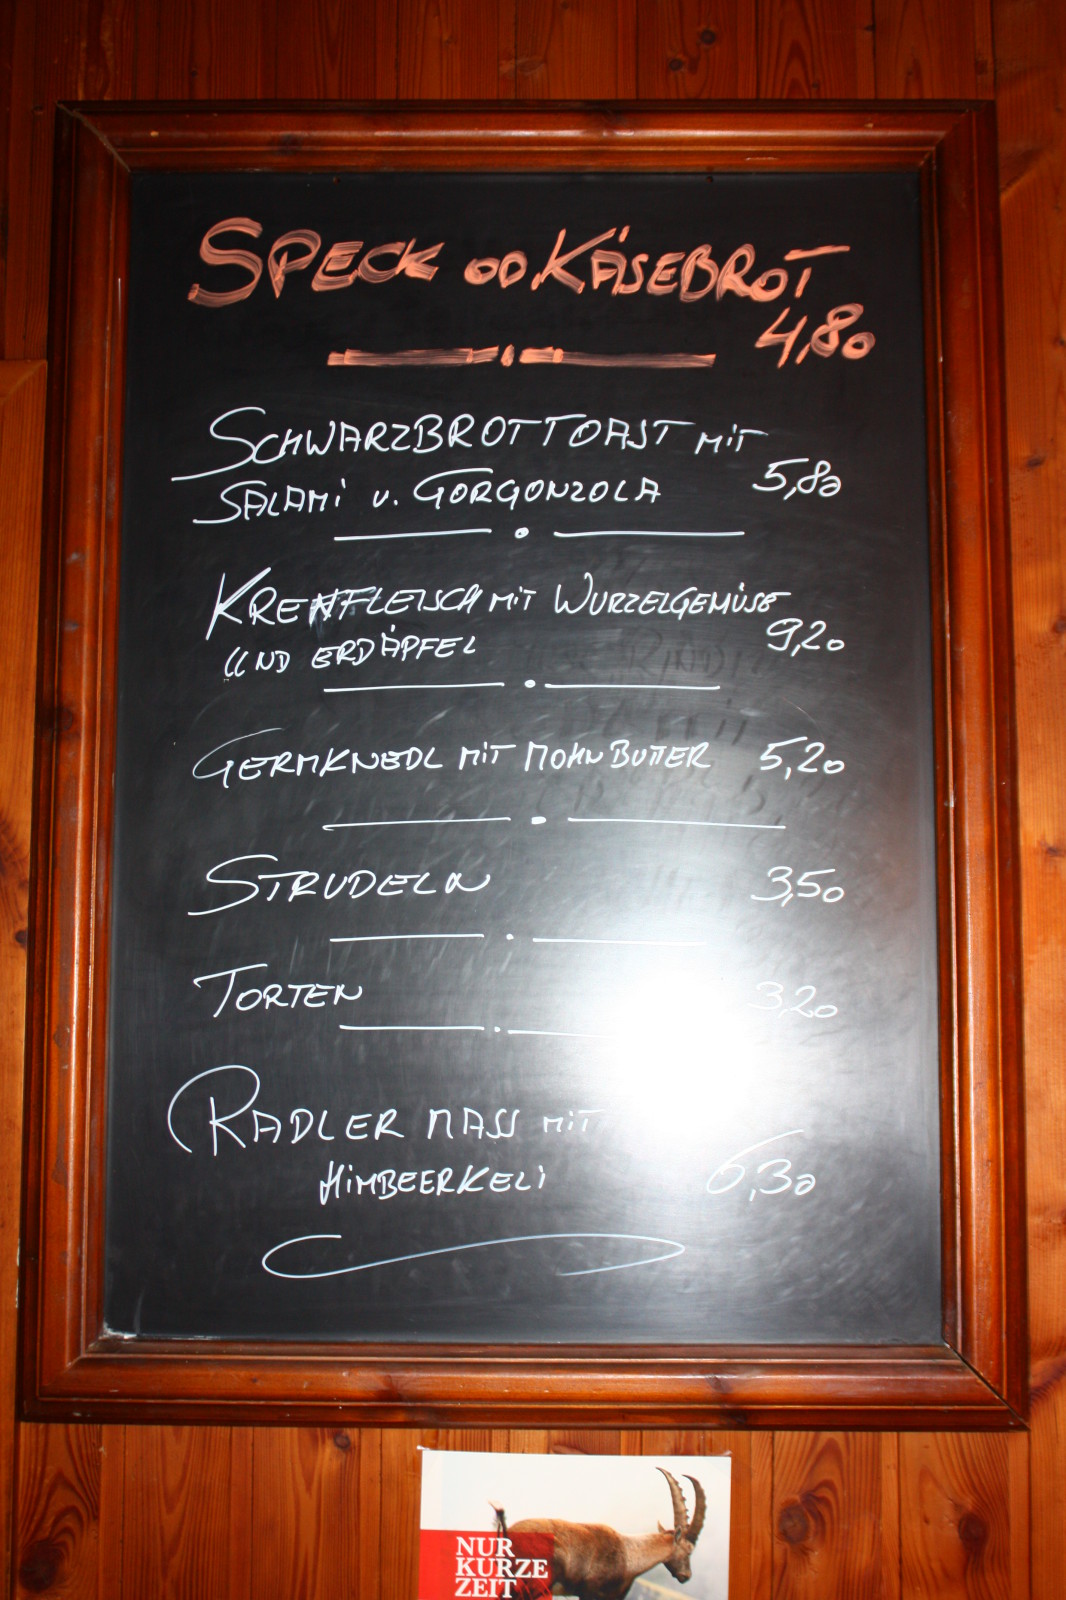 SPECK OD. KÄSEBROT
4,80
SCHWARZBROTTOAST MIT
SALAMI U. GORGONZOLA 5,80
KRENFLEISCH MIT WURZELGEMÜSE
UND ERDÄPFEL 9,20
GERMKNEDL MIT MOHNBUTTER 5,20
STRUDELN 3,50
TORTEN 3,20
RADLER MASS MIT
HIMBEERKELI 6,30
NUR
KURZE
ZEIT